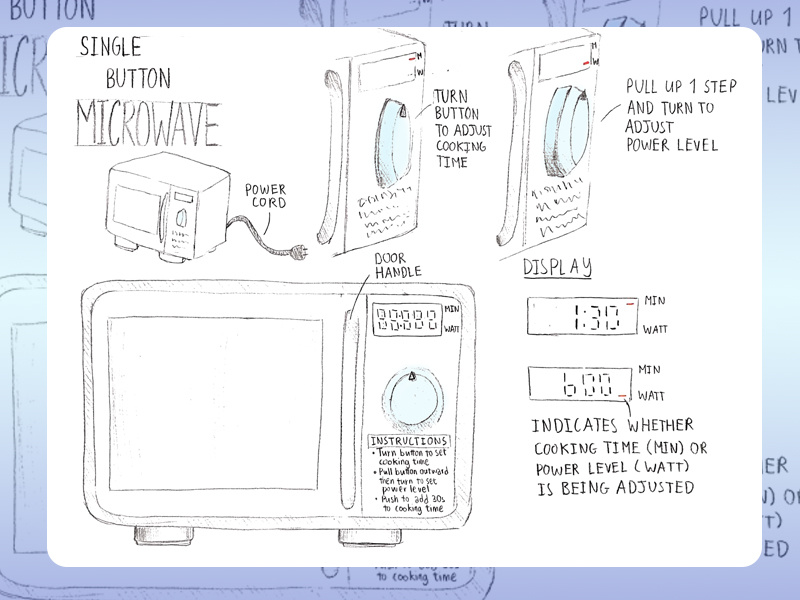 SINGLE
BUTTON
MICROWAVE
POWER
CORD
M
W
TURN
BUTTON
TO ADJUST
COOKING
TIME
M
W
PULL UP 1 STEP
AND TURN TO
ADJUST
POWER LEVEL
DOOR
HANDLE
MIN
WATT
INSTRUCTIONS
• Turn button to set
cooking time
• Pull button outward
then turn to set
power level
• Push to add 30s
to cooking time
DISPLAY
1:30
MIN
WATT
600
MIN
WATT
INDICATES WHETHER
COOKING TIME (MIN) OR
POWER LEVEL (WATT)
IS BEING ADJUSTED
BUTTON
TURN
PULL UP 1
to cooking time